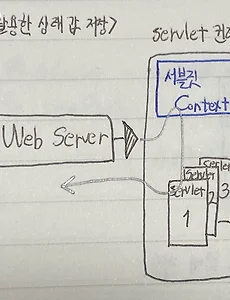 활용한 상태 값 저장>
Servlet 컨
서블릿
Context
Web Server
Servlet
Servlet
1
2
3